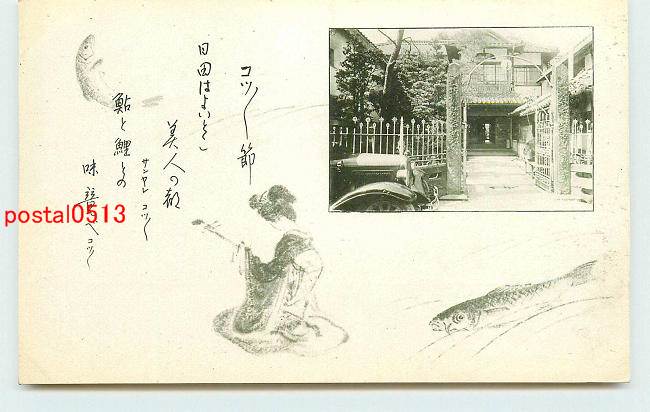 コツ〱節
日田はよいとこ
美人の都
サンヤン コツ〱
鮎と鯉との
味
コツ〱
postal0513